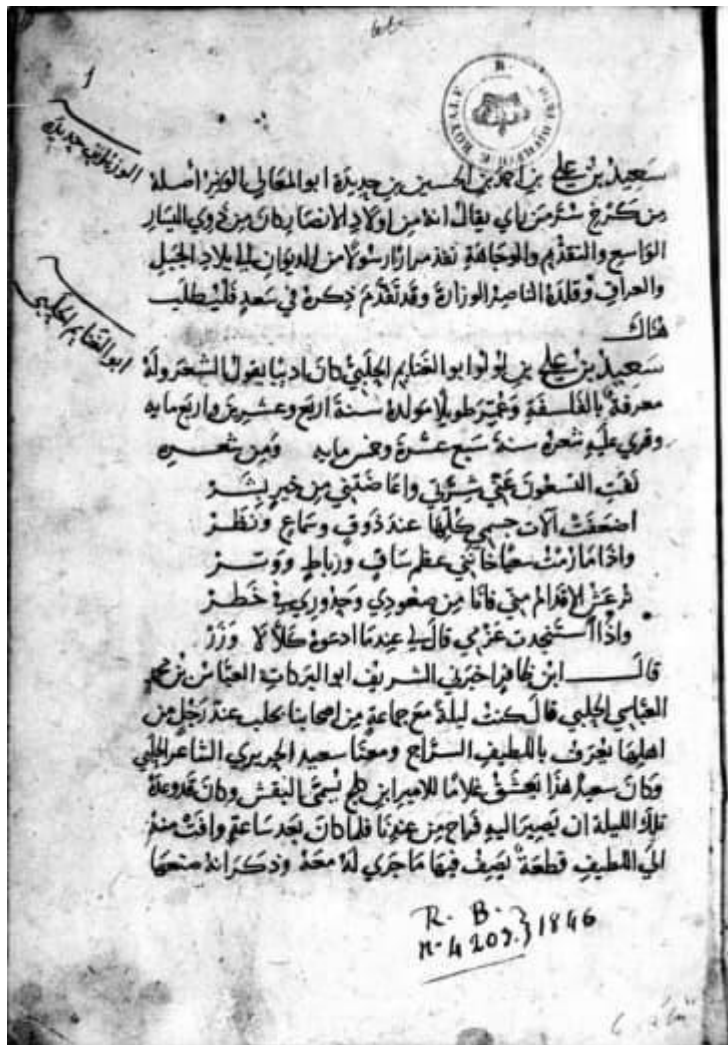 1
الوزير ابن حديدة
سَعِيد بن علي بن احمد بن الحسين بن حديدة ابو المعالي الوزير اصله
من كرخ سُرّ من راي يقال انه من اولاد الانصار كان من ذوي اليسار
الواسع والتقدم والوجاهة نفذ مرارا رسولا من الديوان الي بلاد الجبل
والعراق وقلده الناصر الوزارة وقد تقدم ذكره في سعد فليطلب
هناك
ابو الغنايم الحلبي
سَعِيد بن علي بن لولوا ابو الغنايم الحلبي كان اديبا يقول الشعر وله
معرفة بالفلسفة وعُمّر طويلا مولده سنة اربع وعشرين واربع مايه
وقري عليه شعره سنة سبع عشرة وخمس مايه ومن شعره
نَفَت السعون عني شرتي واعاضتني من خير بشر
اضعفت آلات جسمي كلها عند ذوق وسماع ونظر
واذا ما رمت سعيا خانني عظم ساق ورباط ووتر
ترعش الاقدام مني فانا من صعودي وحدوري في خطر
واذا استنجدت عزمي قال لي عندما ادعوه كلا لا وزر
قال ابن ظافر اخبرني الشريف ابو البركات العباس بن
العباسي الحلبي قال كنت ليلة مع جماعة من اصحابنا بحلب عند رجل من
اهلها يعرف باللطيف السراج ومعنا سعيد الحريري الشاعر الحلبي
وكان سعيد هذا يعشق غلاما للامير ابن يسمى البقش وكان قد وعده
تلك الليلة ان يصير اليه فراح من عندنا فلما كان بعد ساعة وافت منه
الي اللطيف قطعة يصف فيها ما جري له معه وذكر انه صنعها
R. B.
n. 4209. } 1846